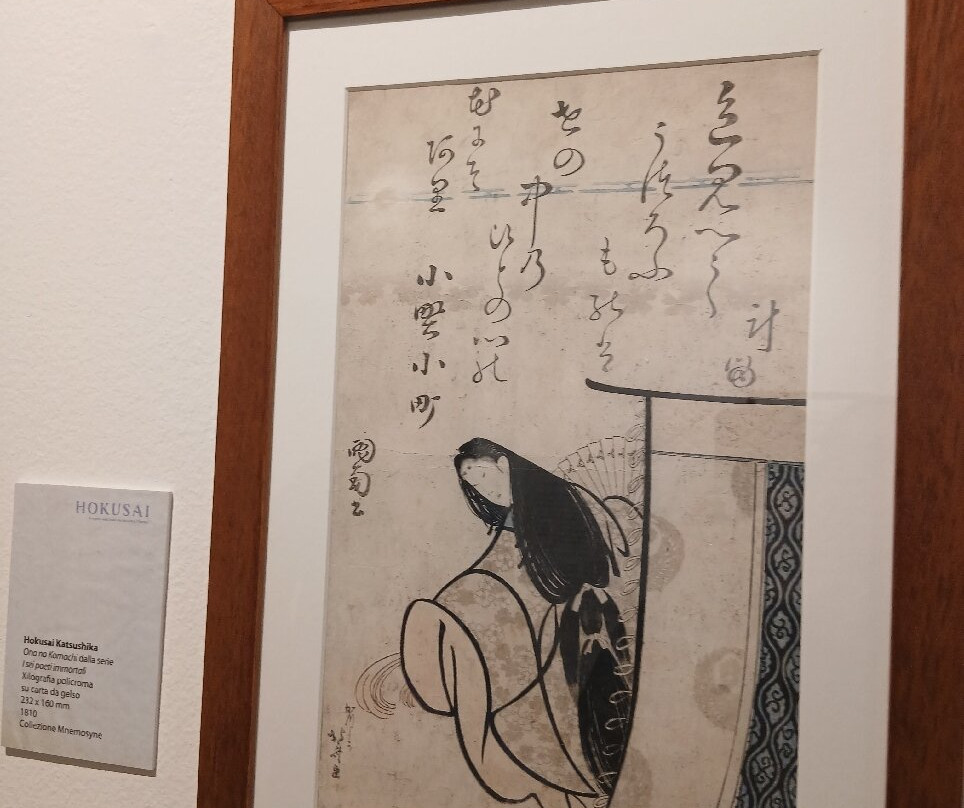 HOKUSAI
Hokusai Katsushika
Ono no Komachi dalla serie
I sei poeti immortali
Xilografia policroma
su carta da gelso
232 x 160 mm
1810
Collezione Mnemosyne
色見えて
うつろふ
もの者
せの
中乃
ひとの心の
花にそ
阿里
計留
小野小町